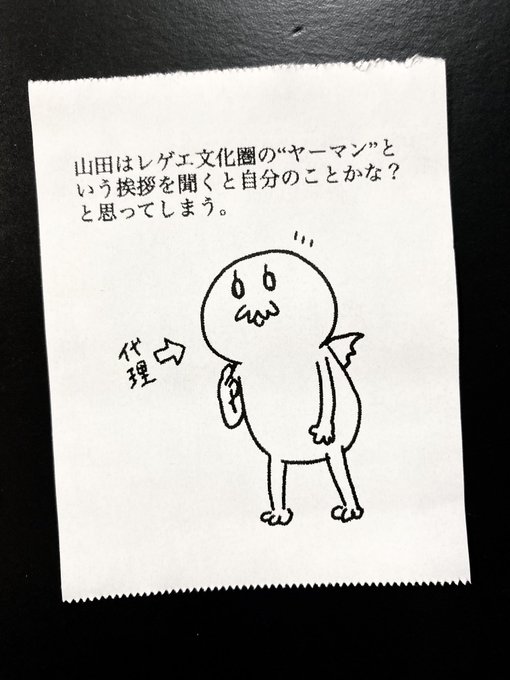 山田はレゲエ文化圏の“ヤーマン”と
いう挨拶を聞くと自分のことかな？
と思ってしまう。
代理